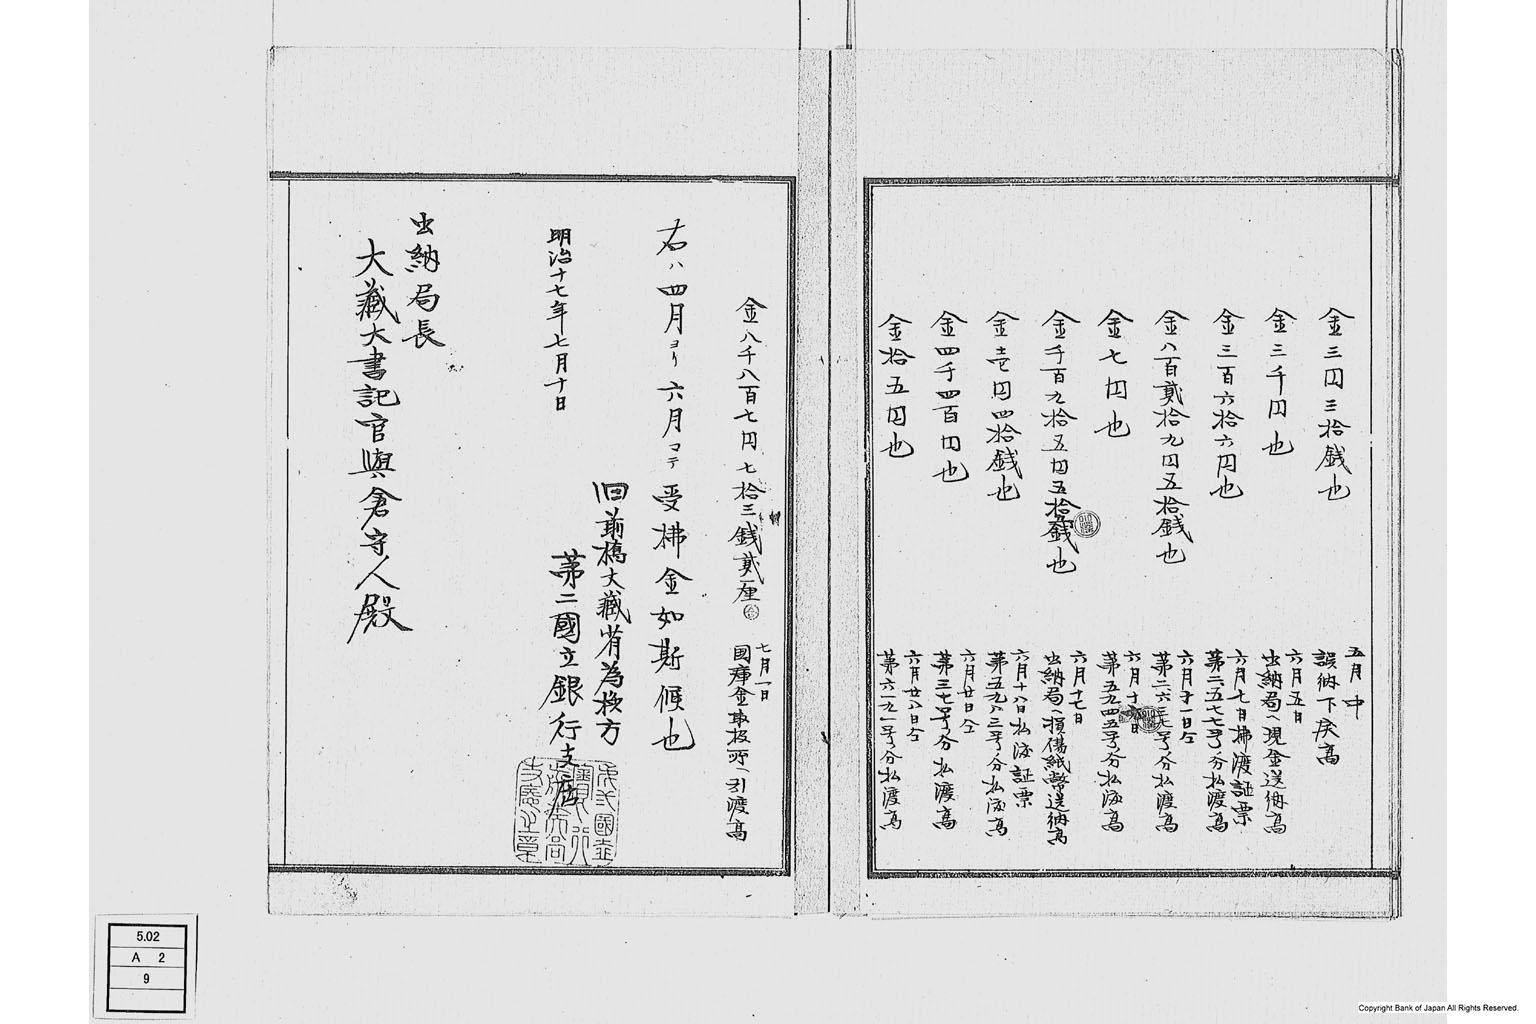 五月中
金三円三拾銭也 誤納下戻高
六月五日
金三千円也 出納局ヘ現金送納高
六月七日拂渡証票
金三百六拾六円也 第二五七七号分払渡高
六月十一日仝
金八百貳拾九円五拾銭也 第二六三七号分払渡高
六月十
金七円也 第五九四五号分払渡高
六月十七日
金千百九拾五円五拾銭也 出納局ヘ損傷紙幣送納高
六月十八日払渡証票
金壱円四拾銭也 第五九八三号分払渡高
六月廿日仝
金四千四百円也 第三七号分払渡高
六月廿八日仝
金拾五円也 第六一九一号分払渡高
七月一日
金八千八百七円七拾三銭貳厘 国庫金取扱所ヘ引渡高
右ハ四月ヨリ六月マテ受拂金如斯候也
旧前橋大藏省為換方
明治十七年七月十日
第二國立銀行支店
出納局長
大藏大書記官與倉守人殿
5.02
A 2
9
Copyright Bank of Japan All Rights Reserved.